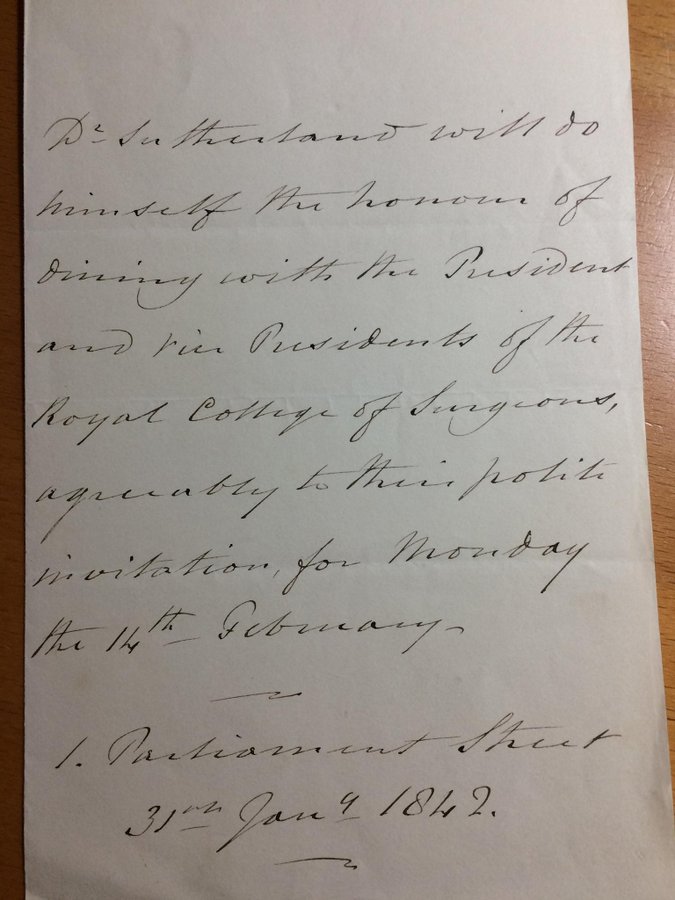 Dr Sutherland will do
himself the honour of
dining with the President
and vice Presidents of the
Royal College of Surgeons,
agreeably to their polite
invitation, for Monday
the 14th February
1. Parliament Street
31st Jany 1842.